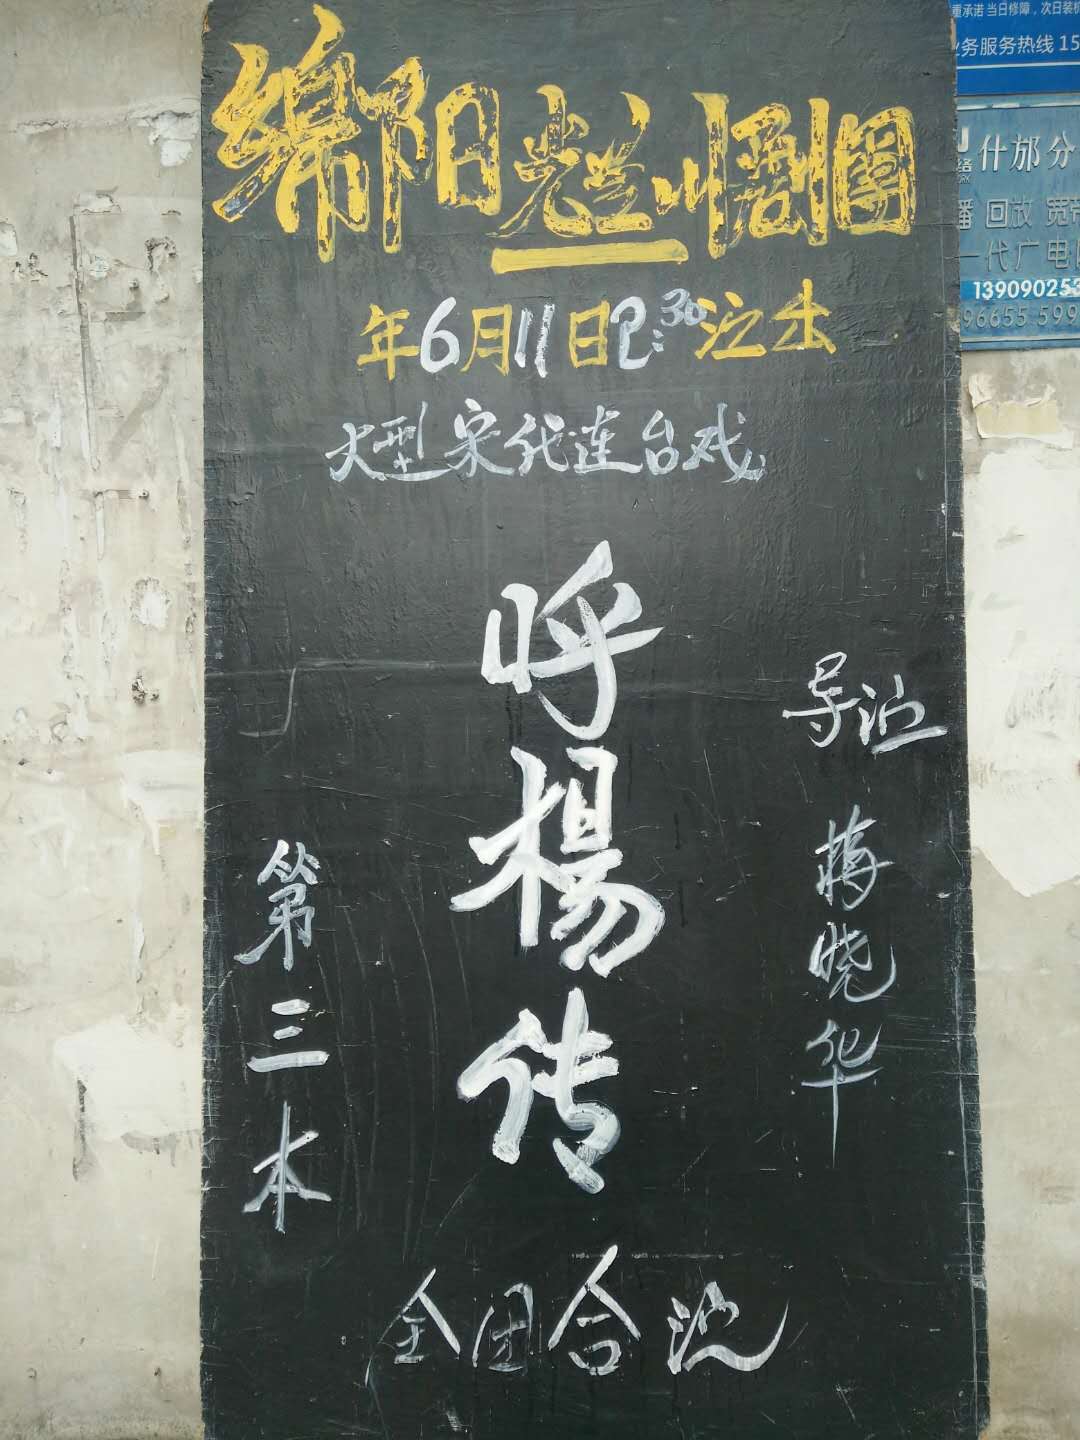 绵阳光兰川剧团
年6月11日2:30演出
大型宋代连台戏
呼杨传
导演 蒋晓华
第三本
全团合演
重承诺 当日修障，次日装机
业务服务热线 15
络 什邡分
播 回放 宽带
一代广电
139090253
96655 599